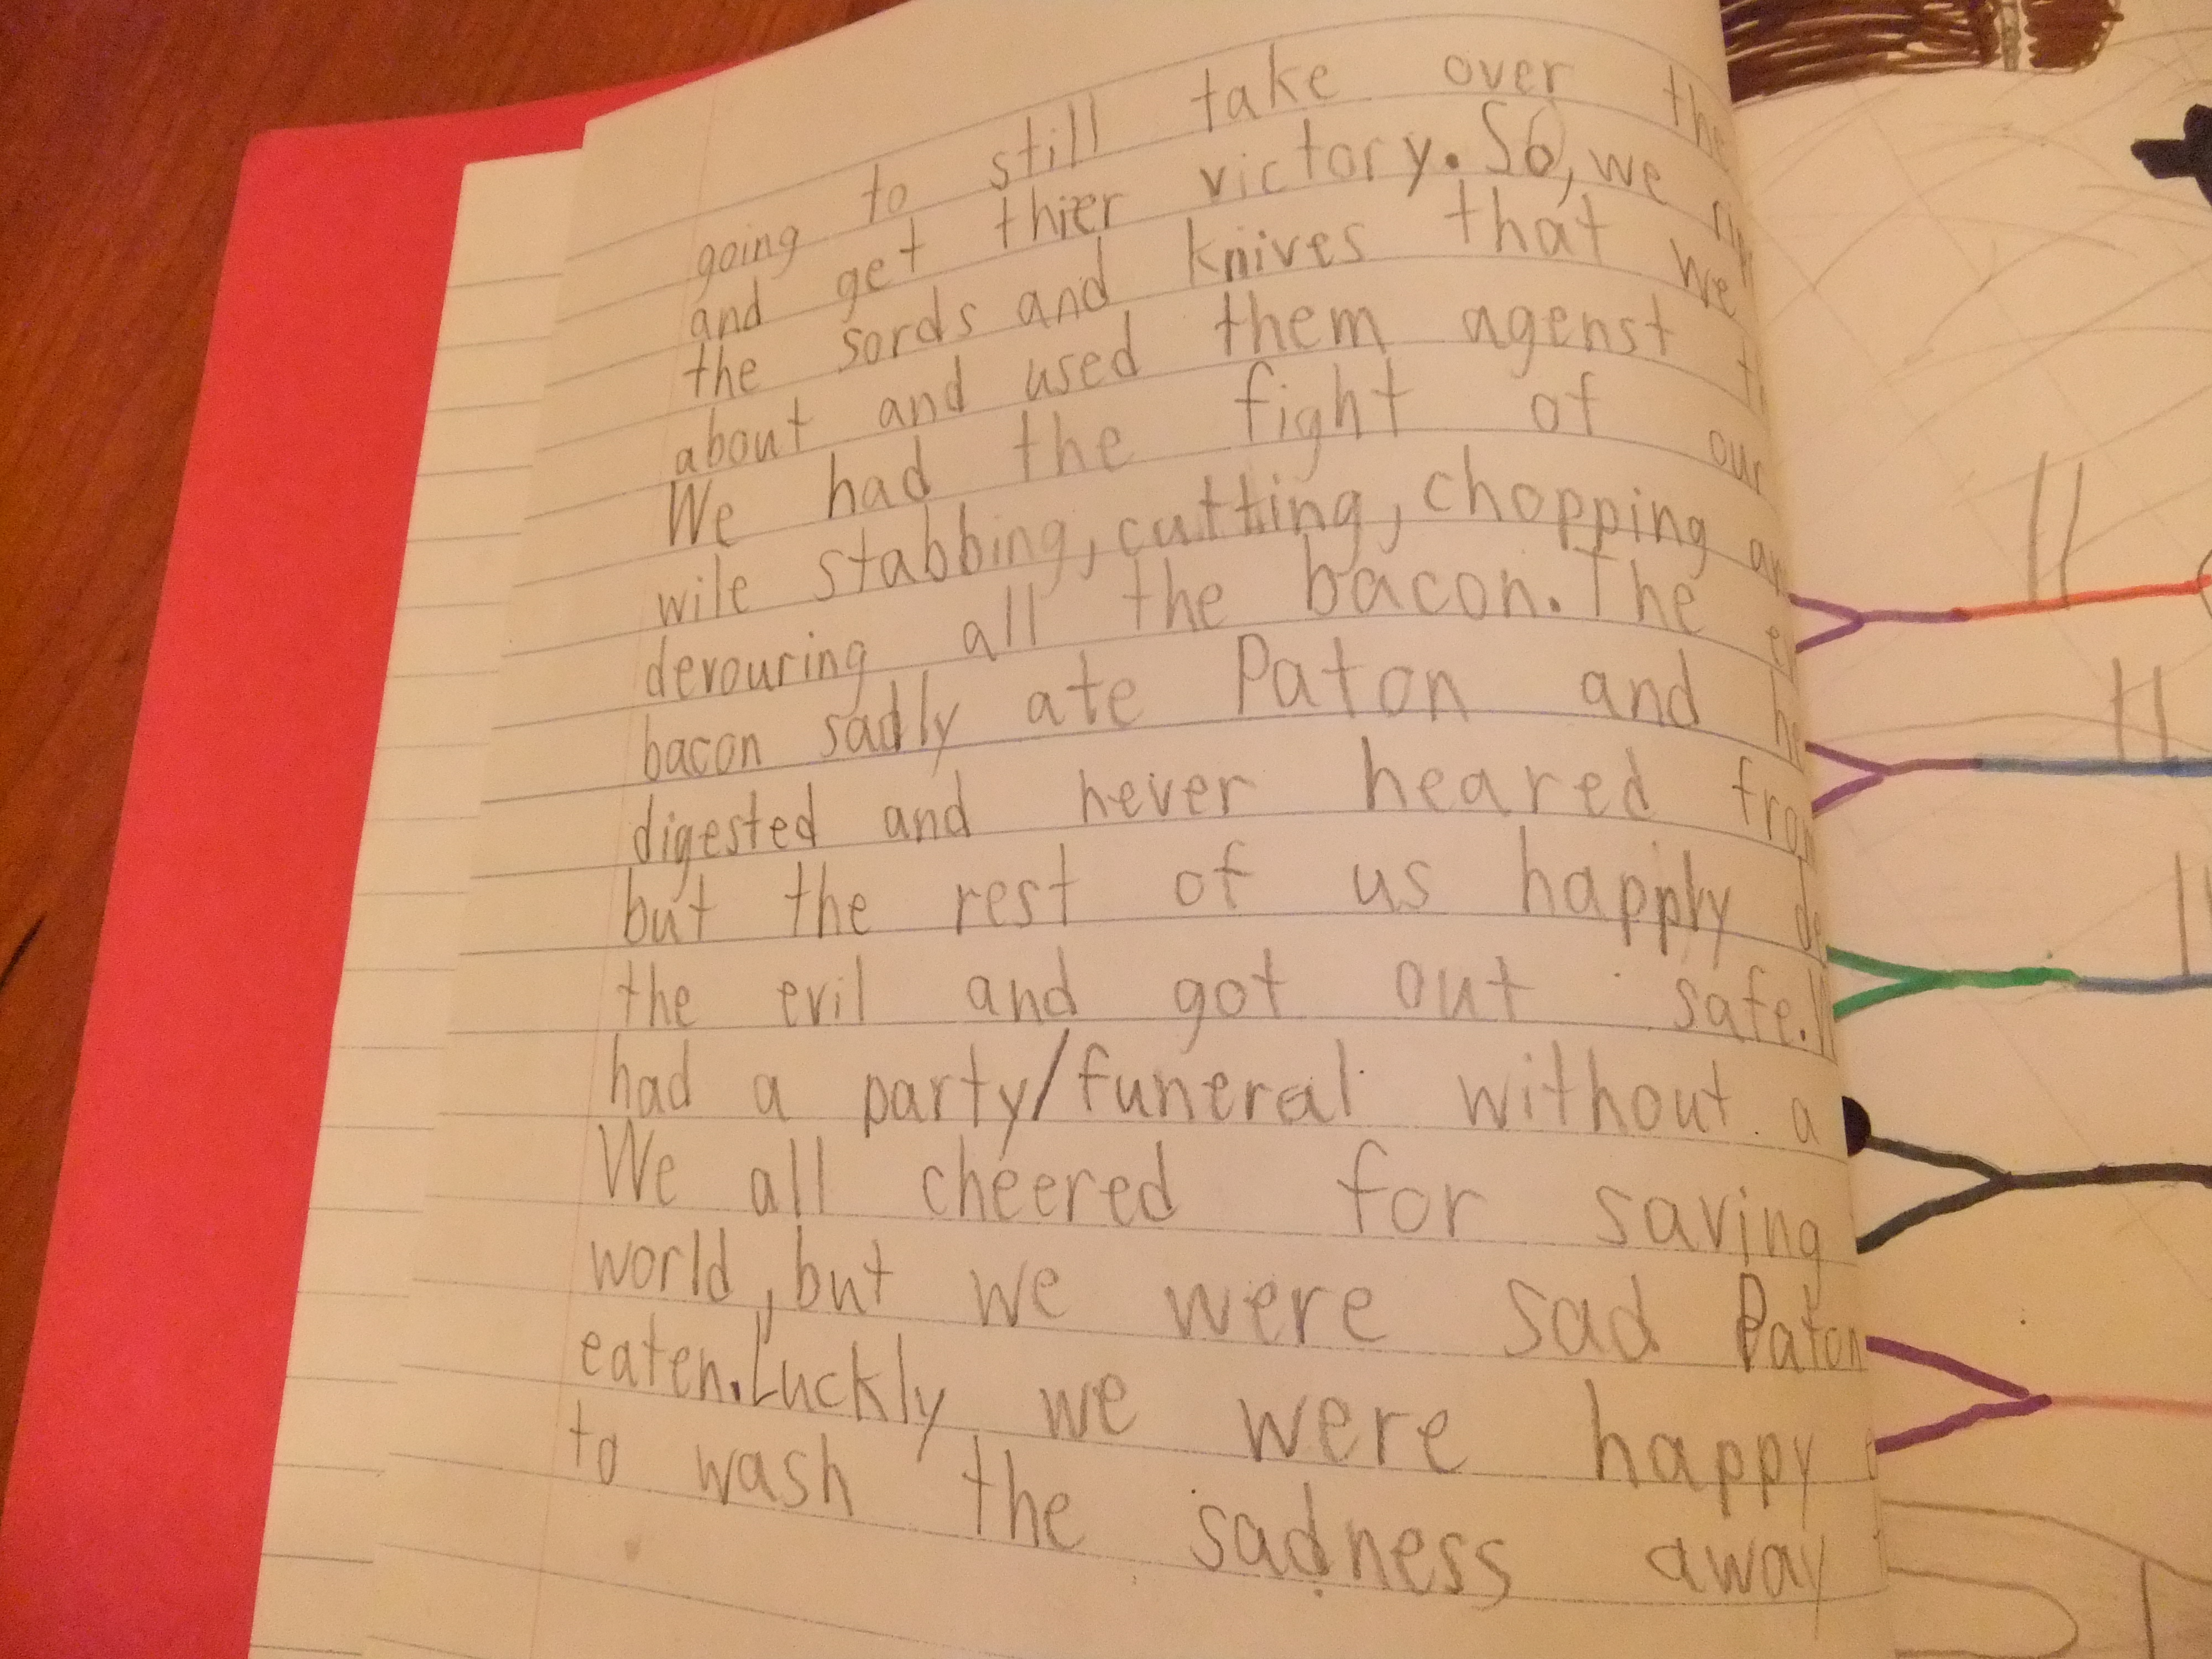 going to still take over the
and get thier victory. So, we
the sords and knives that we
about and used them agenst
We had the fight of our
wile stabbing, cutting, chopping
devouring all the bacon. The
bacon sadly ate Paton and
digested and never heared from
but the rest of us happly
the evil and got out safe.
had a party/funeral without a
We all cheered for saving
world, but we were sad Paton
eaten. Luckly we were happy
to wash the sadness away